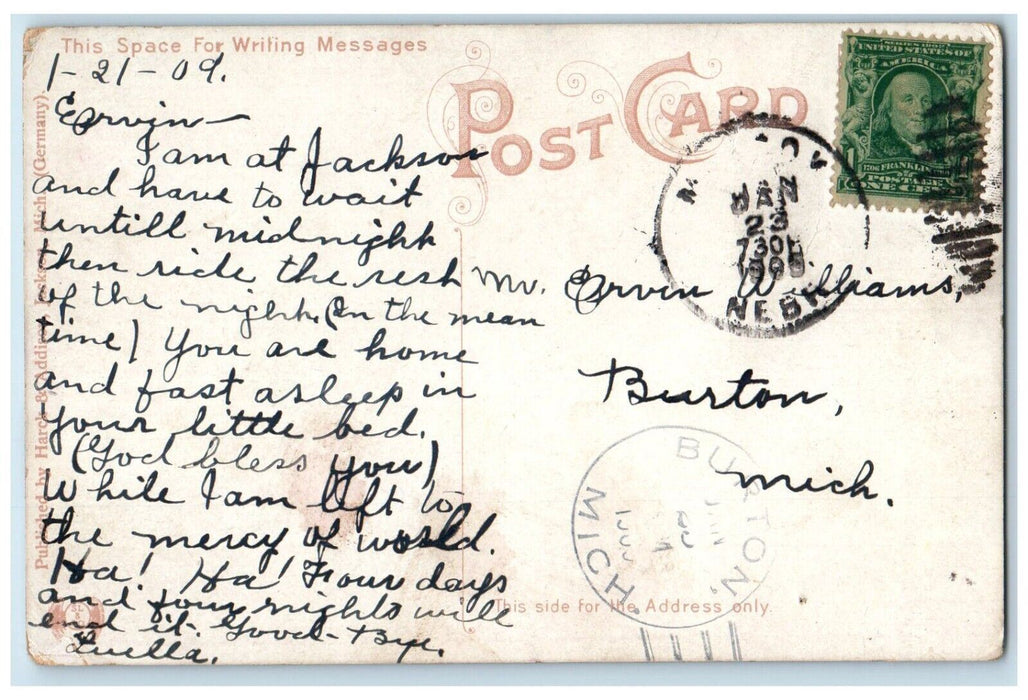 This Space For Writing Messages
POST CARD
1-21-09.
Ervin—
I am at Jackson
and have to wait
untill midnight
then ride the rest
of the night. (In the mean
time) You are home
and fast asleep in
your little bed.
(God bless you)
While I am left to
the mercy of world.
Ha! Ha! Four days
and four nights will
end it. Good-Bye.
Luella.
Published by Harck & Mich. (Germany)
SERIES 1902
UNITED STATES OF
AMERICA
1706 FRANKLIN
POSTAGE
ONE CENT
JAN
23
730
1909
NEBR
Mr. Ervin Williams,
Burton,
Mich.
BURTON,
MICH
This side for the Address only.